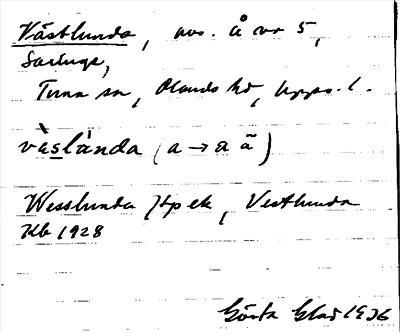 Västlunda, avs. å nr 5,
Saringe,
Tuna sn, Olands hd, Upps. l.
vàslánda (a → a ã)
Wesslunda Jtp ek, Vestlunda
Kb 1928
Gösta Glad 1936